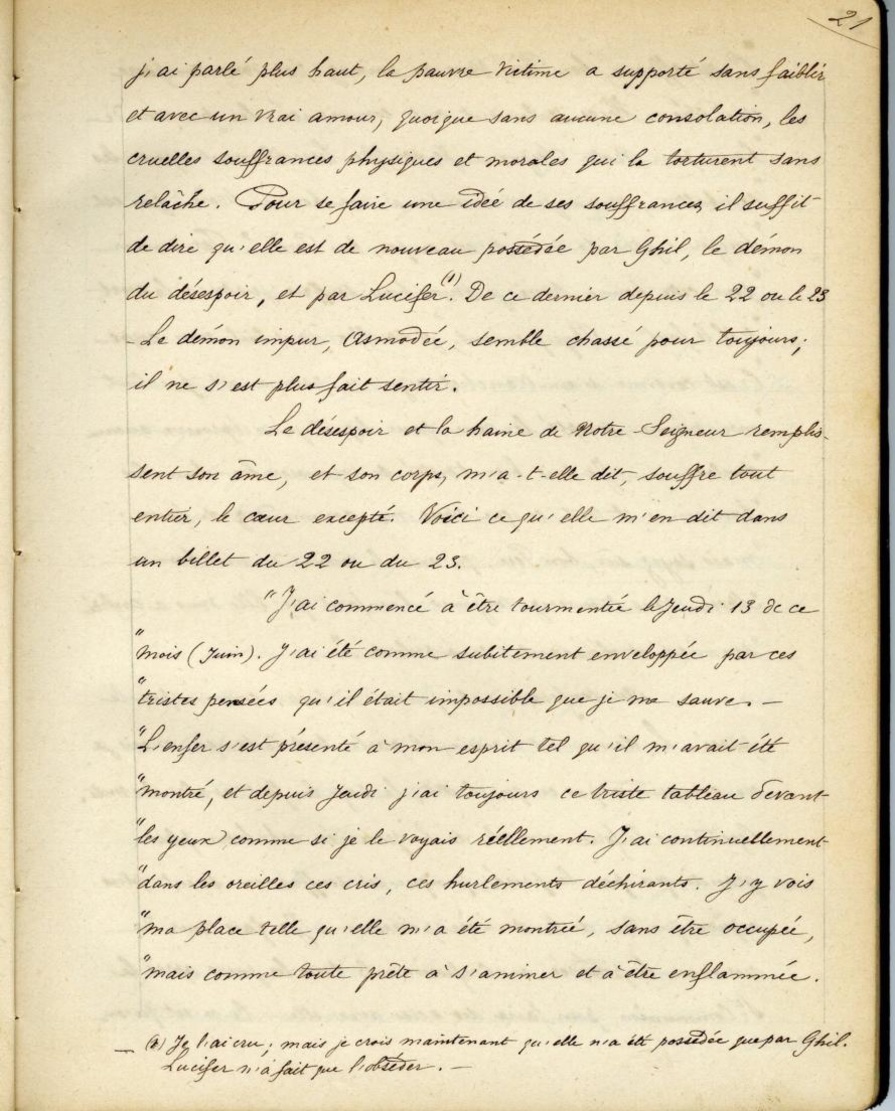 21
j'ai parlé plus haut, la pauvre victime a supporté sans faiblir
et avec un vrai amour, quoique sans aucune consolation, les
cruelles souffrances physiques et morales qui la torturent sans
relâche. Pour se faire une idée de ses souffrances, il suffit
de dire qu'elle est de nouveau possédée par Ghil, le démon
du désespoir, et par Lucifer (1). De ce dernier depuis le 22 ou le 23
- Le démon impur, Asmodée, semble chassé pour toujours;
il ne s'est plus fait sentir.
Le désespoir et la haine de Notre-Seigneur remplis-
sent son âme, et son corps, m'a-t-elle dit, souffre tout
entier, le cœur excepté. Voici ce qu'elle m'en dit dans
un billet du 22 ou du 23.
"J'ai commencé à être tourmentée le Jeudi 13 de ce
"mois (Juin). J'ai été comme subitement enveloppée par ces
"tristes pensées qu'il était impossible que je me sauve. —
"L'enfer s'est présenté à mon esprit tel qu'il m'avait été
"montré, et depuis Jeudi j'ai toujours ce triste tableau devant
"les yeux comme si je le voyais réellement. J'ai continuellement
"dans les oreilles ces cris, ces hurlements déchirants. J'y vois
"ma place telle qu'elle m'a été montrée, sans être occupée,
"mais comme toute prête à s'animer et à être enflammée.
— (1) Je l'ai cru; mais je crois maintenant qu'elle n'a été possédée que par Ghil.
Lucifer n'a fait que l'obséder. —